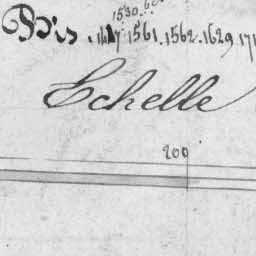 1530.
N.os 1417. 1561. 1562. 1629. 171
Echelle
200